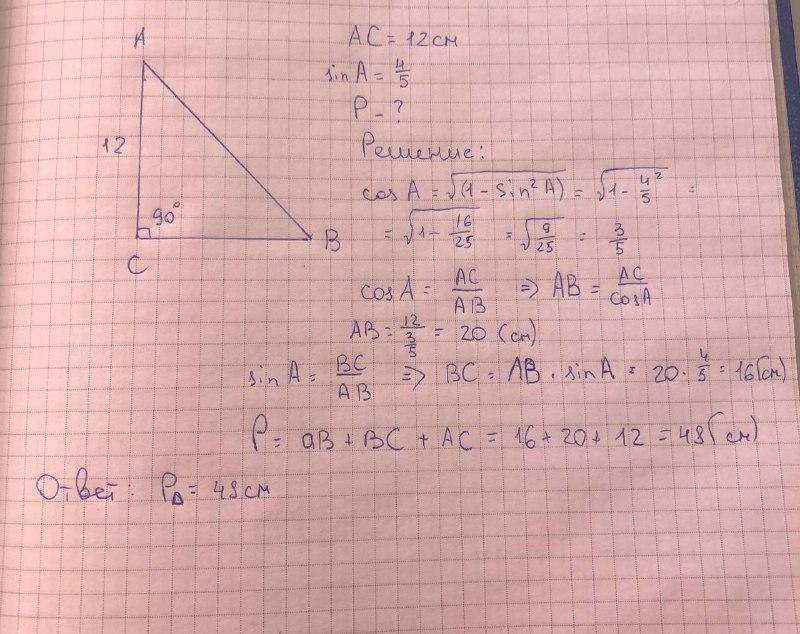 A
12
90°
C
B
AC = 12 см
sin A = 4/5
P - ?
Решение:
cos A = √(1 - sin² A) = √1 - 4/5² =
= √1 - 16/25 = √9/25 = 3/5
cos A = AC/AB ⇒ AB = AC/cos A
AB = 12/(3/5) = 20 (см)
sin A = BC/AB ⇒ BC = AB · sin A = 20 · 4/5 = 16 (см)
P = aB + BC + AC = 16 + 20 + 12 = 48 (см)
Ответ: P∆ = 48 см